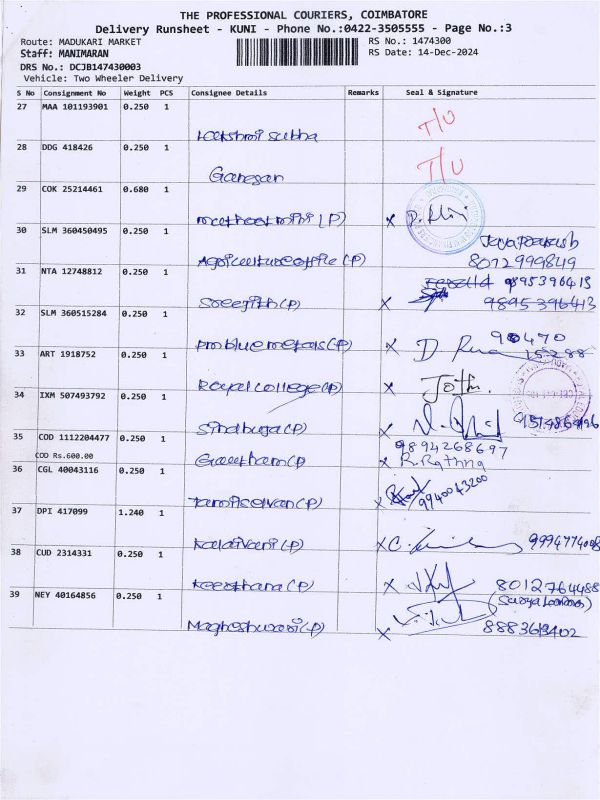 THE PROFESSIONAL COURIERS, COIMBATORE
Delivery Runsheet - KUNI - Phone No.:0422-3505555 - Page No.:3
Route: MADUKARI MARKET RS No.: 1474300
Staff: MANIMARAN RS Date: 14-Dec-2024
DRS No.: DCJB147430003
Vehicle: Two Wheeler Delivery
S No Consignment No Weight PCS Consignee Details Remarks Seal & Signature
27 MAA 101193901 0.250 1
Lakshmi subha T/U
28 DDG 418426 0.250 1
Ganesan T/U
29 COK 25214461 0.680 1
(P) X
30 SLM 360450495 0.250 1
Agriculture office (P) Jayaprakash
8012999849
31 NTA 12748812 0.250 1
Sreejith (P) X 9895396413
9895396413
32 SLM 360515284 0.250 1
pro blue metals (P) X 90470
15288
33 ART 1918752 0.250 1
Royal college (P) X Jothi
34 IXM 507493792 0.250 1
Sindhuja (P) X
35 COD 1112204477 0.250 1
COD Rs.600.00
Gowtham (P) 9894268697
X R. Rathna
36 CGL 40043116 0.250 1
Tamilselvan (P) X 9940043200
37 DPI 417099 1.240 1
Kalaivani (P) X 9994774008
38 CUD 2314331 0.250 1
Keerthana (P) X 8012764488
39 NEY 40164856 0.250 1
Magheshwari (P) X